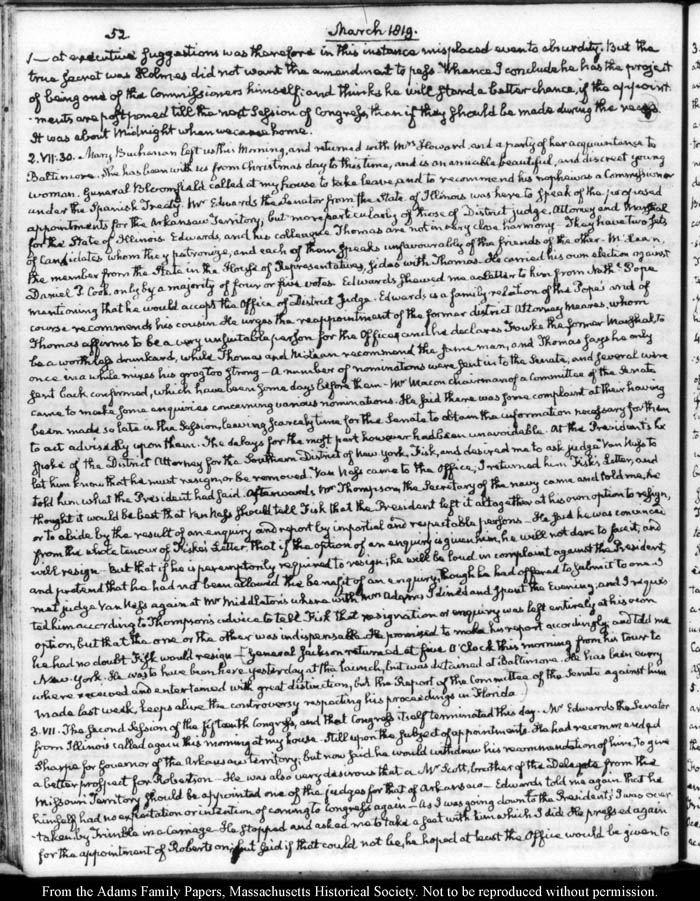 52 March 1819.
1— at executive suggestions was therefore in this instance misplaced even to absurdity. But the
true secret was Holmes did not want the amendment to pass. Whence I conclude he has the project
of being one of the Commissioners himself: and thinks he will stand a better chance, if the appoint-
-ments are postponed till the next Session of Congress, than if they should be made during the recess.
It was about Midnight when we came home.
2. VII:30. Mary Buchanan left us this Morning, and returned with Mrs Howard and a party of her acquaintance to
Baltimore. She has been with us from Christmas day to this time, and is an amiable, beautiful, and discreet young
woman. General Bloomfield called at my house to take leave, and to recommend his nephew as a Commissioner
under the Spanish Treaty. Mr Edwards the Senator from the State of Illinois was here to speak of the proposed
appointments for the Arkansaw Territory, but more particularly of those of District judge, Attorney and Marshal
for the State of Illinois. Edwards, and his colleague Thomas are not in very close harmony. They have two sets
of Candidates whom they patronize, and each of them speaks unfavourably of the friends of the other. McLean,
the member from the State in the House of Representatives, sides with Thomas. He carried his own election against
Daniel P. Cook, only by a majority of four or five votes. Edwards shewed me a letter to him from Nathl. Pope
mentioning that he would accept the Office of District Judge. Edwards is a family relation of the Popes and of
course recommends his cousin. He urges the reappointment of the former district Attorney Meares, whom
Thomas affirms to be a very unsuitable person for the Office; and he declares Fouke the former Marshal, to
be a worthless drunkard, while Thomas and McLean recommend the same man, and Thomas says he only
once in a while mixes his grog too strong— A number of nominations were sent in to the Senate, and several were
sent back confirmed, which have been some days before them— Mr Macon chairman of a Committee of the Senate
came to make some enquiries concerning various nominations. He said there was some complaint at their having
been made so late in the Session, leaving scarcely time for the Senate to obtain the information necessary for them
to act advisedly upon them. The delays for the most part however had been unavoidable. At the President's he
spoke of the District Attorney for the Southern District of New York, Fisk, and desired me to ask judge Van Ness to
let him know that he must resign, or be removed. Van Ness came to the Office; I returned him Fisk's Letter, and
told him what the President had said. Afterwards Mr Thompson, the Secretary of the navy came and told me, he
thought it would be best that Van Ness should tell Fisk that the President left it altogether at his own option to resign,
or to abide by the result of an enquiry and report by impartial and respectable persons— He said he was convinced
from the whole tenour of Fisk's Letter, that if the option of an enquiry is given him, he will not dare to face it, and
will resign— but that if he is peremptorily required to resign, he will be loud in complaint against the President,
and pretend that he had not been allowed the benefit of an enquiry, though he had offered to submit to one— I
met judge Van Ness again at Mr Middleton's where with Mrs Adams I dined and spent the Evening; and I reques-
ted him according to Thompson's advice to tell Fisk that resignation or enquiry was left entirely at his own
option, but that the one or the other was indispensable. He promised to make his report accordingly and told me
he had no doubt Fisk would resign— General Jackson returned at five O'Clock this morning from his tour to
New York. He was to have been here yesterday at the launch, but was detained at Baltimore. He has been every
where received and entertained with great distinction, but the Report of the Committee of the Senate against him
made last week, keeps alive the controversy respecting his proceedings in Florida.
3. VII. The Second Session of the fifteenth Congress, and that Congress itself terminated this day— Mr Edwards the Senator
from Illinois called again this morning at my house. Still upon the subject of appointments. He had recommended
Sharpe for Governor of the Arkansaw territory; but now said he would withdraw his recommendation of him, to give
a better prospect for Robertson— He was also very desirous that a Mr Scott, brother of the Delegate from the
Missouri Territory should be appointed one of the judges for that of Arkansaw— Edwards told me again that he
himself had no expectation or intention of coming to Congress again— As I was going down to the President's I was over
-taken by Trimble in a Carriage— He stopped and asked me to take a seat with him which I did. He pressed again
for the appointment of Robertson; but said if that could not be, he hoped at least the Office would be given to
From the Adams Family Papers, Massachusetts Historical Society. Not to be reproduced without permission.